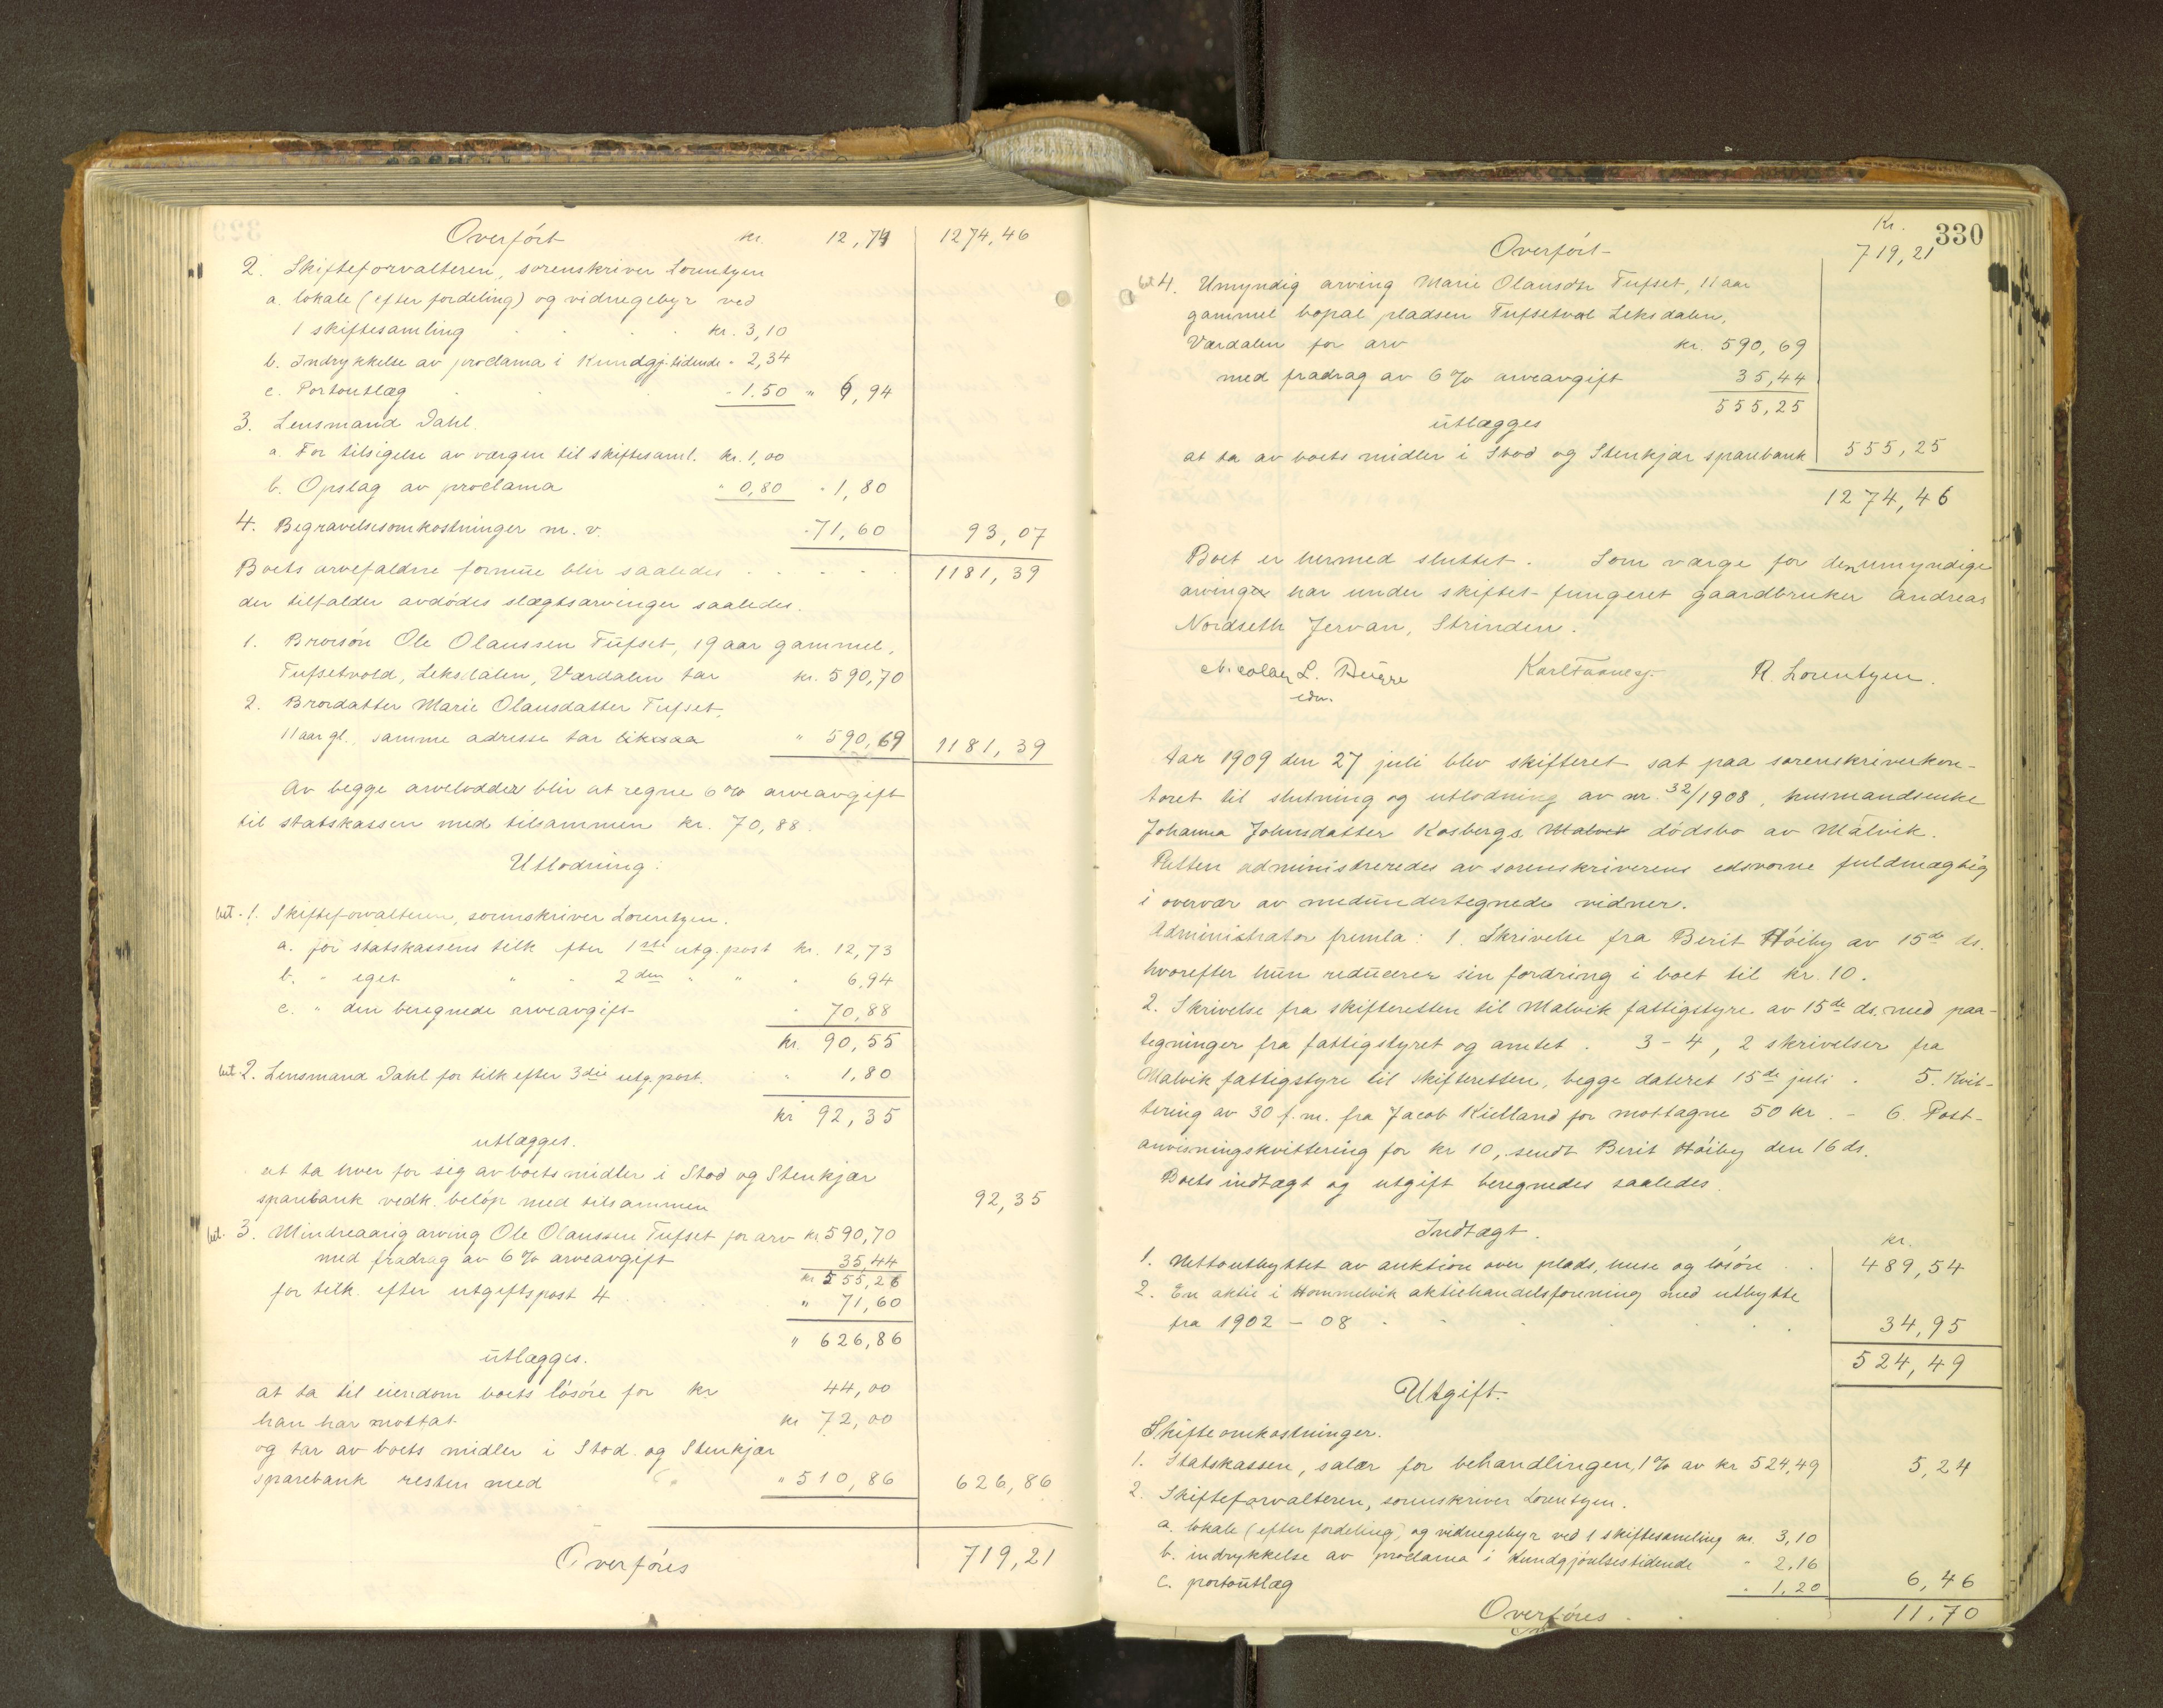 Overført kr. 12,74 1274,46
2. Skifteforvalteren, sorenskriver Lorentzen
a. lokale (efter fordeling) og vidnegebyr ved
1 skiftesamling kr. 3,10
b. Indrykkelse av proclama i Kundgj.tidende - 2,34
c. Portoutlæg - 1.50 " 6,94
3. Lensmand Dahl.
a. For tilsigelse av værgen til skiftesaml. kr. 1,00
b. Opslag av proclama " 0,80 - 1,80
4. Begravelsesomkostninger m. v. - 71,60 93,07
Boets arvefaldne formue blir saaledes 1181,39
der tilfalder avdødes slægtsarvinger saaledes.
1. Brorsøn Ole Olaussen Tufset, 19 aar gammel,
Tufsetvold, Leksdalen, Værdalen tar kr. 590,70
2. Brordatter Marie Olausdatter Tufset,
11 aar gl., samme adresse tar likesaa " 590,69 1181,39
Av begge arvelodder blir at regne 6 % arveavgift
til statskassen med tilsammen kr. 70,88.
Utlodning:
bet. 1. Skifteforvalteren, sorenskriver Lorentzen.
a. for statskassens tilk efter 1ste utg.post kr. 12,73
b. " eget " " 2den " " " 6,94
c. " den beregnede arveavgift - 70,88
kr. 90,55
bet. 2. Lensmand Dahl for tilk efter 3die utg.post. " 1,80
kr 92,35
utlægges.
at ta hver for sig av boets midler i Stod og Stenkjær
sparebank vedk. beløp med tilsammen 92,35
bet. 3. Mindreaarig arving Ole Olaussen Tufset for arv kr 590,70
med fradrag av 6 % arveavgift 35,44
kr 555,26
for tilk. efter utgiftspost 4 " 71,60
" 626,86
utlægges.
at ta til eiendom boets løsøre for kr 44,00
han har mottat kr 72,00
og tar av boets midler i Stod og Stenkjær
sparebank resten med " 510,86 626,86
Overføres 719,21
330
Kr.
Overført 719,21
bet 4. Umyndig arving Marie Olausdtr Tufset, 11 aar
gammel bopæl pladsen Tufsetvol Leksdalen,
Værdalen for arv kr. 590,69
med fradrag av 6 % arveavgift 35,44
555,25
utlægges
at ta av boets midler i Stod og Stenkjær sparebank 555,25
1274,46
Boet er hermed sluttet. Som værge for den umyndige
arvinger har under skiftet fungeret gaardbruker Andreas
Nordseth Jervan, Strinden.
Nicolay L. R. Lorentzen.
edv.
Aar 1909 den 27 juli blev skifteret sat paa sorenskriverkon-
toret til slutning og utlodning av nr. 32/1908, husmandsenke
Johanna Johnsdatter Kosbergs Malvik dødsbo av Malvik.
Retten administreredes av sorenskriverens edsvorne fuldmægtig
i overvær av medundertegnede vidner.
Administrator fremla: 1. Skrivelse fra Berit Høiby av 15de ds.
hvorefter hun reducerer sin fordring i boet til kr. 10.
2. Skrivelse fra skifteretten til Malvik fattigstyre av 15de ds. med paa-
tegninger fra fattigstyret og amtet. 3-4, 2 skrivelser fra
Malvik fattigstyre til skifteretten, begge dateret 15de juli. 5. Kvit-
tering av 30 f.m. fra Jacob Kielland for mottagne 50 kr. - 6. Post-
anvisningskvittering for kr 10, sendt Berit Høiby den 16 ds.
Boets indtægt og utgift beregnedes saaledes.
Indtægt.
kr.
1. Nettoutbyttet av auktion over plads, huse og løsøre 489,54
2. En aktie i Hommelvik aktiehandelsforening med utbytte
fra 1902 - 08 34,95
524,49
Utgift.
Skifteomkostninger.
1. Statskassen, salær for behandlingen, 1 % av kr 524,49 5,24
2. Skifteforvalteren, sorenskriver Lorentzen.
a. lokale (efter fordeling) og vidnegebyr ved 1 skiftesamling kr. 3,10
b. indrykkelse av proclama i Kundgjørelsestidende " 2.16
c. portoutlæg " 1,20 6,46
Overføres 11,70